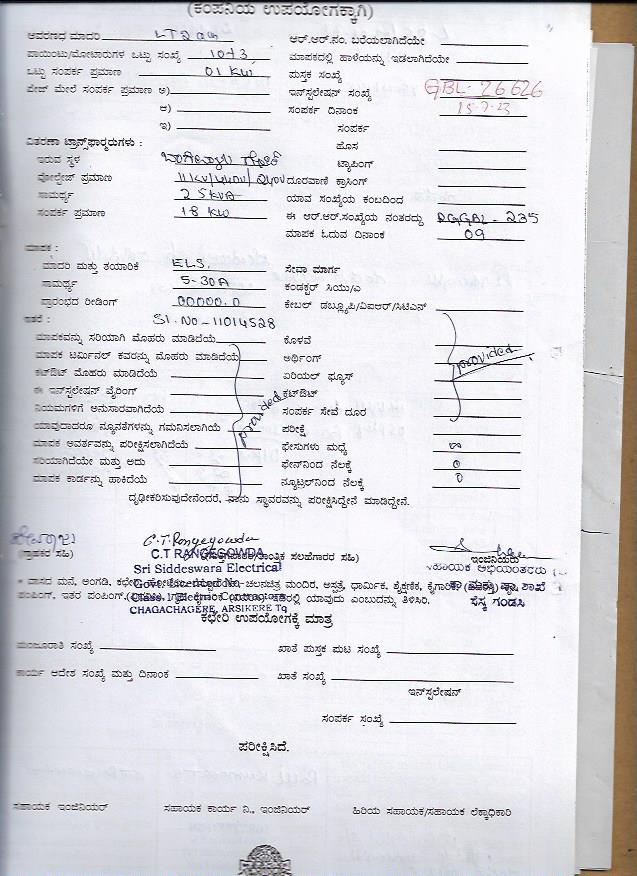 (ಕಂಪನಿಯ ಉಪಯೋಗಕ್ಕಾಗಿ)
ಆವರಣದ ಮಾದರಿ LT2a(ii) ಆರ್.ಆರ್.ನಂ. ಬರೆಯಲಾಗಿದೆಯೇ
ಪಾಯಿಂಟು/ಮೋಟಾರುಗಳ ಒಟ್ಟು ಸಂಖ್ಯೆ 10+3 ಮಾಪಕದಲ್ಲಿ ಹಾಳೆಯನ್ನು ಇಡಲಾಗಿದೆಯೇ
ಒಟ್ಟು ಸಂಪರ್ಕ ಪ್ರಮಾಣ 01 KW ಪುಸ್ತಕ ಸಂಖ್ಯೆ
ಪೇಜ್ ಮೇಲೆ ಸಂಪರ್ಕ ಪ್ರಮಾಣ ಅ) ಇನ್‌ಸ್ಟಲೇಷನ್ ಸಂಖ್ಯೆ GBL-26626
ಆ) ಸಂಪರ್ಕ ದಿನಾಂಕ
ಇ) ಸಂಪರ್ಕ
ವಿತರಣಾ ಟ್ರಾನ್ಸ್‌ಫಾರ್ಮರುಗಳು : ಹೊಸ
ಇರುವ ಸ್ಥಳ ಟ್ಯಾಪಿಂಗ್
ವೋಲ್ಟೇಜ್ ಪ್ರಮಾಣ 11KV/440V/240V ದೂರವಾಣಿ ಕ್ರಾಸಿಂಗ್
ಸಾಮರ್ಥ್ಯ 25KVA ಯಾವ ಸಂಖ್ಯೆಯ ಕಂಬದಿಂದ
ಸಂಪರ್ಕ ಪ್ರಮಾಣ 18 KW ಈ ಆರ್.ಆರ್.ಸಂಖ್ಯೆಯ ನಂತರದ್ದು DGGBL-235
ಮಾಪಕ ಓದುವ ದಿನಾಂಕ 09
ಮಾಪಕ :
ಮಾದರಿ ಮತ್ತು ತಯಾರಿಕೆ ELS. ಸೇವಾ ಮಾರ್ಗ
ಸಾಮರ್ಥ್ಯ 5-30A ಕಂಡಕ್ಟರ್ ಸಿಯು/ಎ
ಪ್ರಾರಂಭದ ರೀಡಿಂಗ್ 00000.0 ಕೇಬಲ್ ಡಬ್ಲ್ಯೂಪಿ/ವಿಐಆರ್/ಸಿಟಿಎನ್
ಇತರೆ : Sl.No-11014528
ಮಾಪಕವನ್ನು ಸರಿಯಾಗಿ ಮೊಹರು ಮಾಡಿದೆಯೆ ಕೊಳವೆ
ಮಾಪಕ ಟರ್ಮಿನಲ್ ಕವರನ್ನು ಮೊಹರು ಮಾಡಿದೆಯೆ ಅರ್ಥಿಂಗ್ provided
ಕಟ್‌ಔಟ್ ಮೊಹರು ಮಾಡಿದೆಯೆ ಏರಿಯಲ್ ಫ್ಯೂಸ್
ಈ ಇನ್‌ಸ್ಟಲೇಷನ್ ವೈರಿಂಗ್ ಕಟ್‌ಔಟ್
ನಿಯಮಗಳಿಗೆ ಅನುಸಾರವಾಗಿದೆಯೆ provided ಸಂಪರ್ಕ ಸೇವೆ ದೂರ
ಯಾವುದಾದರೂ ನ್ಯೂನತೆಗಳನ್ನು ಗಮನಿಸಲಾಗಿಯೆ ಪರೀಕ್ಷೆ
ಮಾಪಕ ಆವರ್ತವನ್ನು ಪರೀಕ್ಷಿಸಲಾಗಿದೆಯೆ ಫೇಸುಗಳು ಮಧ್ಯೆ
ಸರಿಯಾಗಿದೆಯೇ ಮತ್ತು ಅದು ಫೇಸ್‌ನಿಂದ ನೆಲಕ್ಕೆ 0
ಮಾಪಕ ಕಾರ್ಡನ್ನು ಹಾಕಿದೆಯೆ ನ್ಯೂಟ್ರಲ್‌ನಿಂದ ನೆಲಕ್ಕೆ 0
ದೃಢೀಕರಿಸುವುದೇನೆಂದರೆ, ನಾನು ಸ್ಥಾವರವನ್ನು ಪರೀಕ್ಷಿಸಿದ್ದೇನೆ ಮಾಡಿದ್ದೇನೆ.
C.T. Rangegowda
(ಗ್ರಾಹಕರ ಸಹಿ) ಸಲಹೆಗಾರರ ಸಹಿ) ಇಂಜಿನಿಯರು
C.T RANGEGOWDA ಸಹಾಯಕ ಅಭಿಯಂತರರು
Sri Siddeswara Electrical
* ವಾಸದ ಮನೆ, ಅಂಗಡಿ, ಚಲನಚಿತ್ರ ಮಂದಿರ, ಆಸ್ಪತ್ರೆ, ಧಾರ್ಮಿಕ, ಶೈಕ್ಷಣಿಕ, ಕೈಗಾರಿಕೆ
ಪಂಪಿಂಗ್, ಇತರ ಪಂಪಿಂಗ್ ಯಾವುದು ಎಂಬುದನ್ನು ತಿಳಿಸಿರಿ. ಗಂಡಸಿ
CHAGACHAGERE, ARSIKERE Tq
ಕಛೇರಿ ಉಪಯೋಗಕ್ಕೆ ಮಾತ್ರ
ಮಂಜೂರಾತಿ ಸಂಖ್ಯೆ ಖಾತೆ ಪುಸ್ತಕ ಪುಟ ಸಂಖ್ಯೆ
ಕಾರ್ಯ ಆದೇಶ ಸಂಖ್ಯೆ ಮತ್ತು ದಿನಾಂಕ ಖಾತೆ ಸಂಖ್ಯೆ
ಇನ್‌ಸ್ಟಲೇಷನ್
ಸಂಪರ್ಕ ಸಂಖ್ಯೆ
ಪರೀಕ್ಷಿಸಿದೆ.
ಸಹಾಯಕ ಇಂಜಿನಿಯರ್ ಸಹಾಯಕ ಕಾರ್ಯ ನಿ., ಇಂಜಿನಿಯರ್ ಹಿರಿಯ ಸಹಾಯಕ/ಸಹಾಯಕ ಲೆಕ್ಕಾಧಿಕಾರಿ